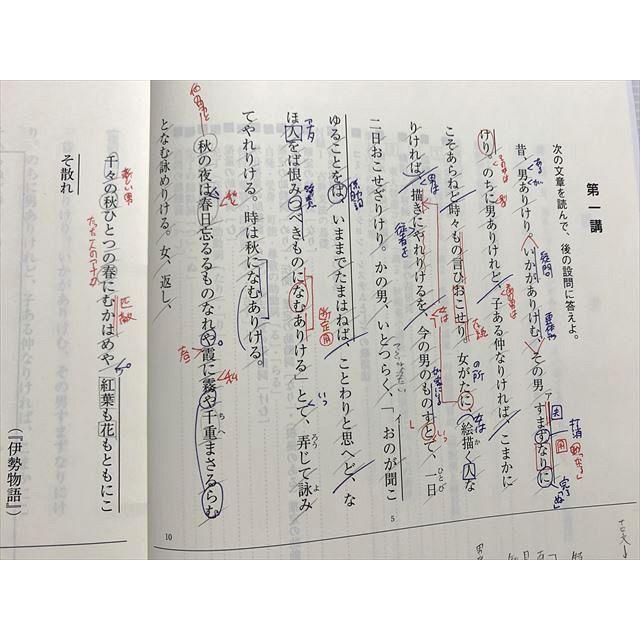 第一講
次の文章を読んで、後の設問に答えよ。
昔、男ありけり。いかがありけむ、その男、すまずなりに
けり。のちに男ありけれど、子ある仲なりければ、こまかに
こそあらねど時々もの言ひおこせり。女がたに、絵描く人な
りければ、描きにやれりけるを、今の男のものすとて、一日
二日おこせざりけり。かの男、いとつらく、「おのが聞こ
ゆることをば、いままでたまはねば、ことわりと思へど、な
ほ人をば恨みつべきものになむありける」とて、弄じて詠み
てやれりける。時は秋になむありける。
秋の夜は春日忘るるものなれや霞に霧や千重まさるらむ
となむ詠めりける。女、返し、
千々の秋ひとつの春にむかはめや紅葉も花もともにこ
そ散れ
(『伊勢物語』)
5
10
ろう
よ
か
ひとひ
ちへ
疑問
断定用
打消
完了「ぬ」
匹敵
新しい男
従者を
の所